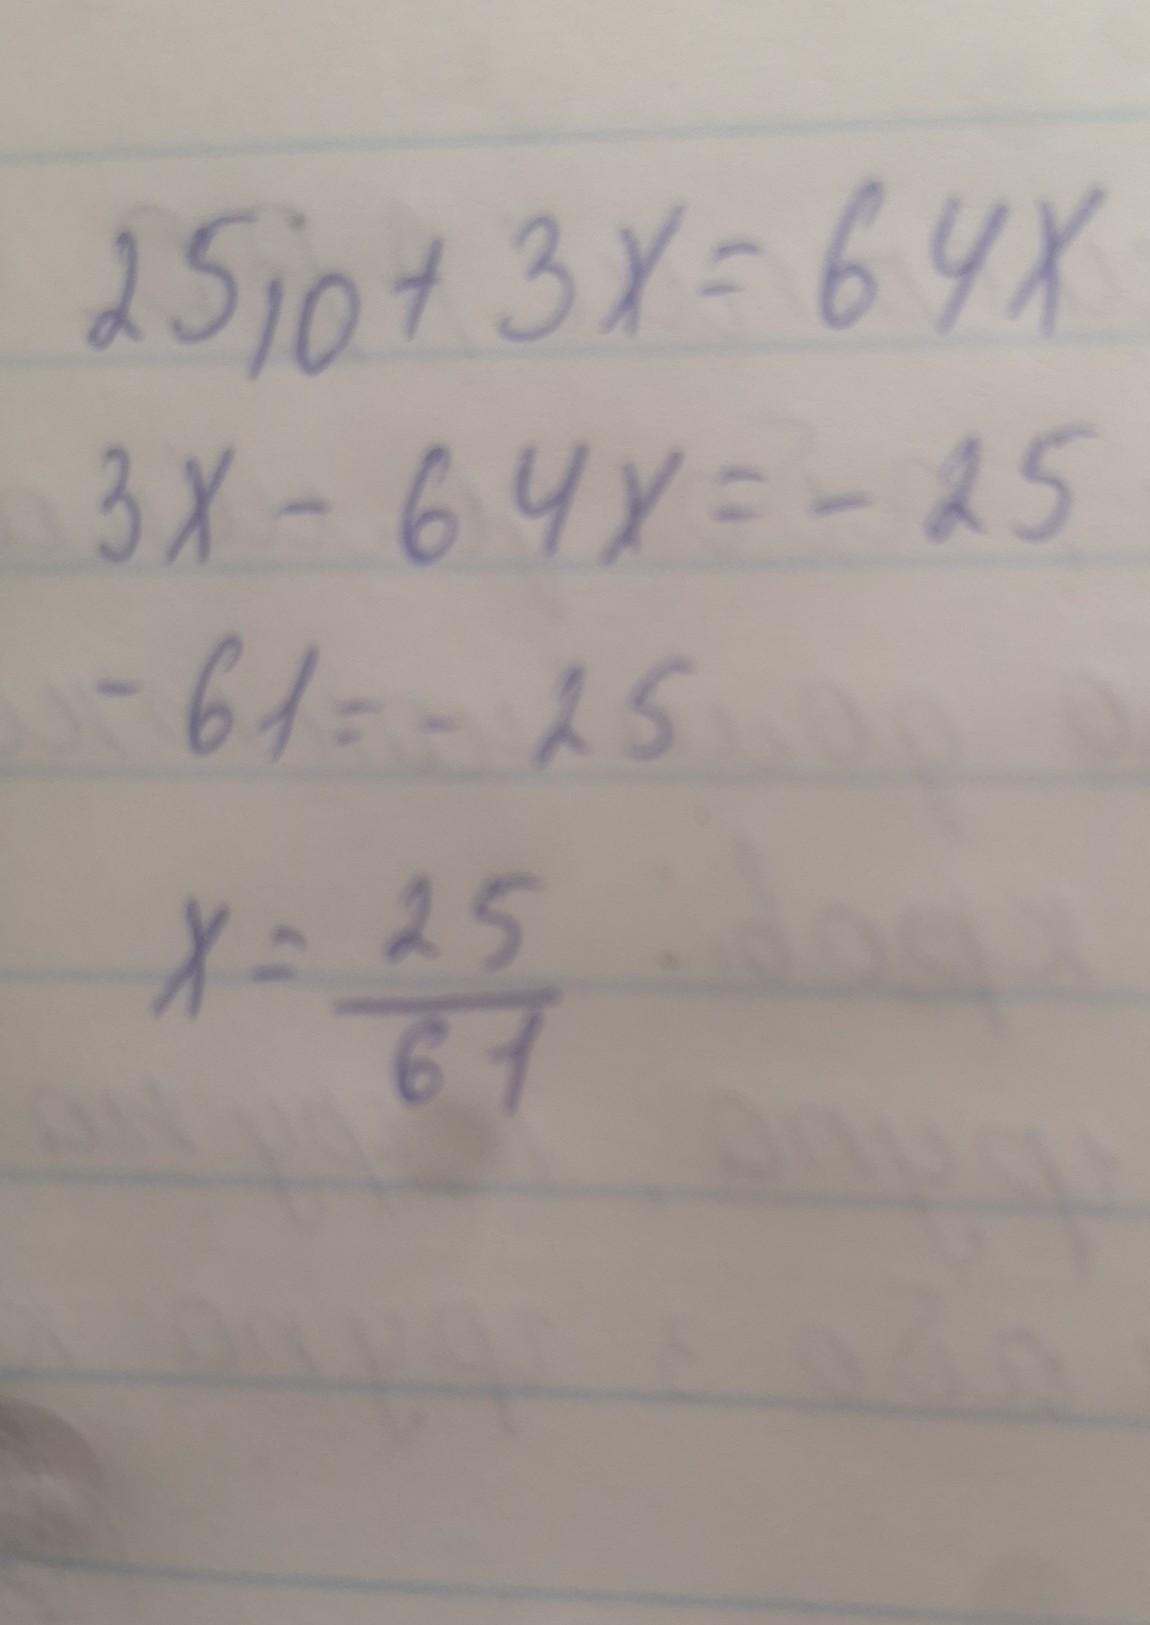 25,0 + 3x = 64x
3x - 64x = - 25
- 61 = - 25
x = 25/61